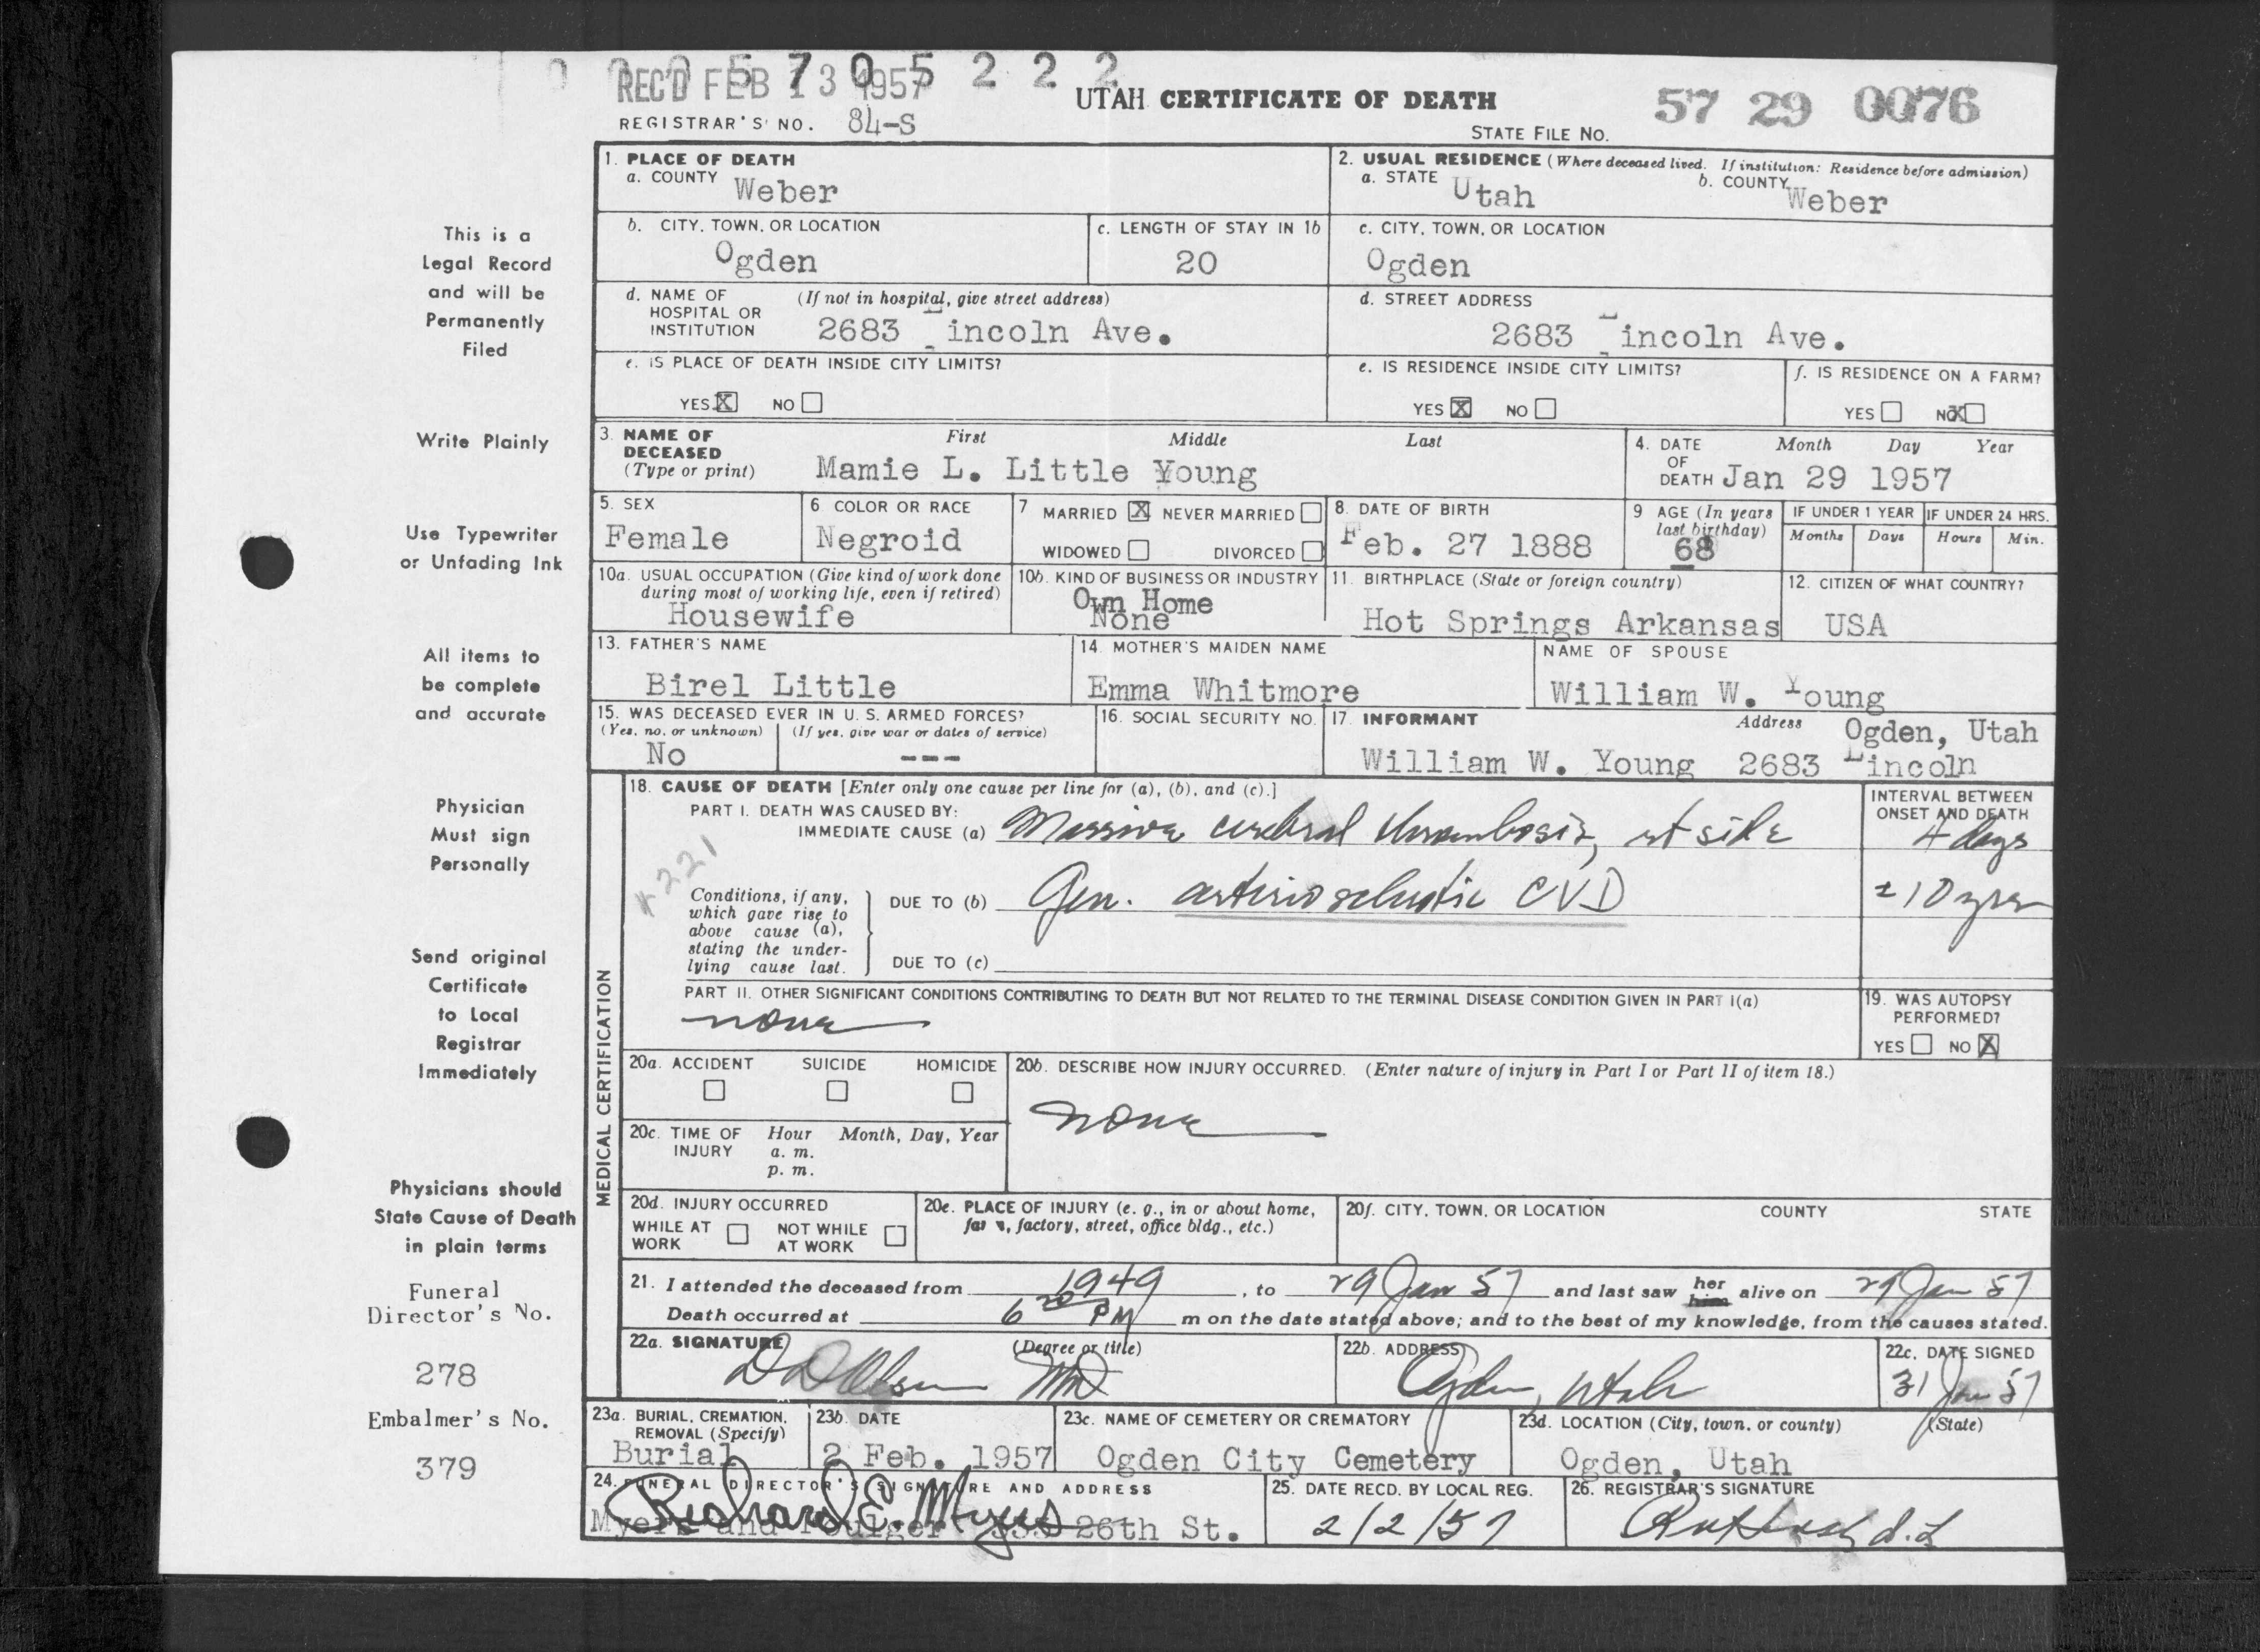 REC'D FEB 13 1957
0 0 0 5 7 0 5 2 2 2
UTAH CERTIFICATE OF DEATH
57 29 0076
REGISTRAR'S NO. 84-S
STATE FILE No.
1. PLACE OF DEATH
a. COUNTY Weber
2. USUAL RESIDENCE (Where deceased lived. If institution: Residence before admission)
a. STATE Utah b. COUNTY Weber
b. CITY, TOWN, OR LOCATION
Ogden
c. LENGTH OF STAY IN 1b
20
c. CITY, TOWN, OR LOCATION
Ogden
d. NAME OF HOSPITAL OR INSTITUTION (If not in hospital, give street address)
2683 Lincoln Ave.
d. STREET ADDRESS
2683 Lincoln Ave.
e. IS PLACE OF DEATH INSIDE CITY LIMITS?
YES X NO
e. IS RESIDENCE INSIDE CITY LIMITS?
YES X NO
f. IS RESIDENCE ON A FARM?
YES NO X
3. NAME OF DECEASED (Type or print)
First Middle Last
Mamie L. Little Young
4. DATE OF DEATH
Month Day Year
Jan 29 1957
5. SEX
Female
6 COLOR OR RACE
Negroid
7 MARRIED X NEVER MARRIED
WIDOWED DIVORCED
8. DATE OF BIRTH
Feb. 27 1888
9 AGE (In years last birthday)
68
IF UNDER 1 YEAR
Months Days
IF UNDER 24 HRS.
Hours Min.
10a. USUAL OCCUPATION (Give kind of work done during most of working life, even if retired)
Housewife
10b. KIND OF BUSINESS OR INDUSTRY
Own Home
None
11. BIRTHPLACE (State or foreign country)
Hot Springs Arkansas
12. CITIZEN OF WHAT COUNTRY?
USA
13. FATHER'S NAME
Birel Little
14. MOTHER'S MAIDEN NAME
Emma Whitmore
NAME OF SPOUSE
William W. Young
15. WAS DECEASED EVER IN U. S. ARMED FORCES?
(Yes, no, or unknown) (If yes, give war or dates of service)
No ---
16. SOCIAL SECURITY NO.
17. INFORMANT Address
Ogden, Utah
William W. Young 2683 Lincoln
MEDICAL CERTIFICATION
18. CAUSE OF DEATH [Enter only one cause per line for (a), (b), and (c).]
PART I. DEATH WAS CAUSED BY:
IMMEDIATE CAUSE (a) Massive cerebral thrombosis, rt side
INTERVAL BETWEEN ONSET AND DEATH
4 days
Conditions, if any, which gave rise to above cause (a), stating the underlying cause last.
DUE TO (b) Gen. arteriosclerotic CVD
± 10 yrs
DUE TO (c)
PART II. OTHER SIGNIFICANT CONDITIONS CONTRIBUTING TO DEATH BUT NOT RELATED TO THE TERMINAL DISEASE CONDITION GIVEN IN PART I(a)
none
19. WAS AUTOPSY PERFORMED?
YES NO X
20a. ACCIDENT SUICIDE HOMICIDE
20b. DESCRIBE HOW INJURY OCCURRED. (Enter nature of injury in Part I or Part II of item 18.)
none
20c. TIME OF INJURY Hour Month, Day, Year
a. m.
p. m.
20d. INJURY OCCURRED
WHILE AT WORK NOT WHILE AT WORK
20e. PLACE OF INJURY (e. g., in or about home, farm, factory, street, office bldg., etc.)
20f. CITY, TOWN, OR LOCATION COUNTY STATE
21. I attended the deceased from 1949, to 29 Jan 57 and last saw her him alive on 29 Jan 57
Death occurred at 6 20 PM m on the date stated above; and to the best of my knowledge, from the causes stated.
22a. SIGNATURE (Degree or title)
MD
22b. ADDRESS
Ogden, Utah
22c. DATE SIGNED
31 Jan 57
23a. BURIAL, CREMATION, REMOVAL (Specify)
Burial
23b. DATE
2 Feb. 1957
23c. NAME OF CEMETERY OR CREMATORY
Ogden City Cemetery
23d. LOCATION (City, town, or county) (State)
Ogden, Utah
24. FUNERAL DIRECTOR'S SIGNATURE AND ADDRESS
Richard E. Myers
Myers and Foulger 26th St.
25. DATE RECD. BY LOCAL REG.
2/2/57
26. REGISTRAR'S SIGNATURE
This is a
Legal Record
and will be
Permanently
Filed
Write Plainly
Use Typewriter
or Unfading Ink
All items to
be complete
and accurate
Physician
Must sign
Personally
Send original
Certificate
to Local
Registrar
Immediately
Physicians should
State Cause of Death
in plain terms
Funeral
Director's No.
278
Embalmer's No.
379